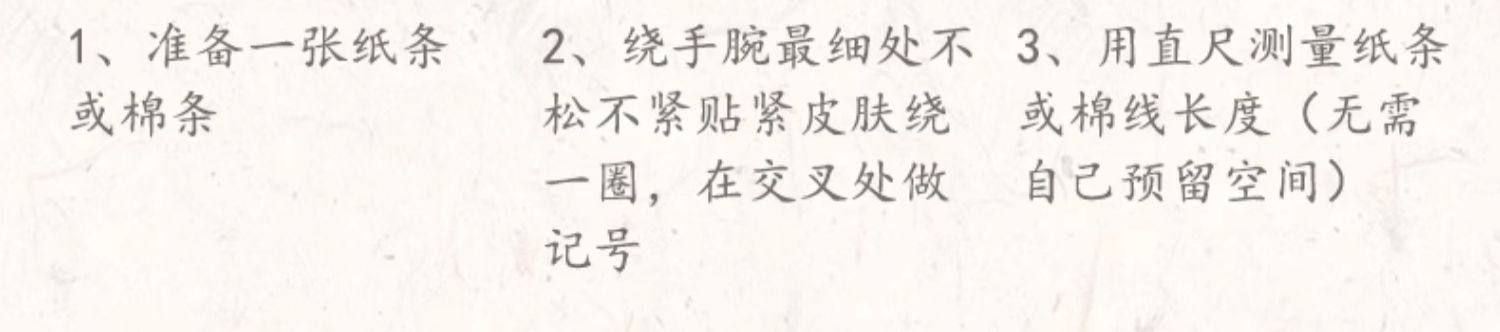 1、准备一张纸条
或棉条
2、绕手腕最细处不
松不紧贴紧皮肤绕
一圈，在交叉处做
记号
3、用直尺测量纸条
或棉线长度（无需
自己预留空间）